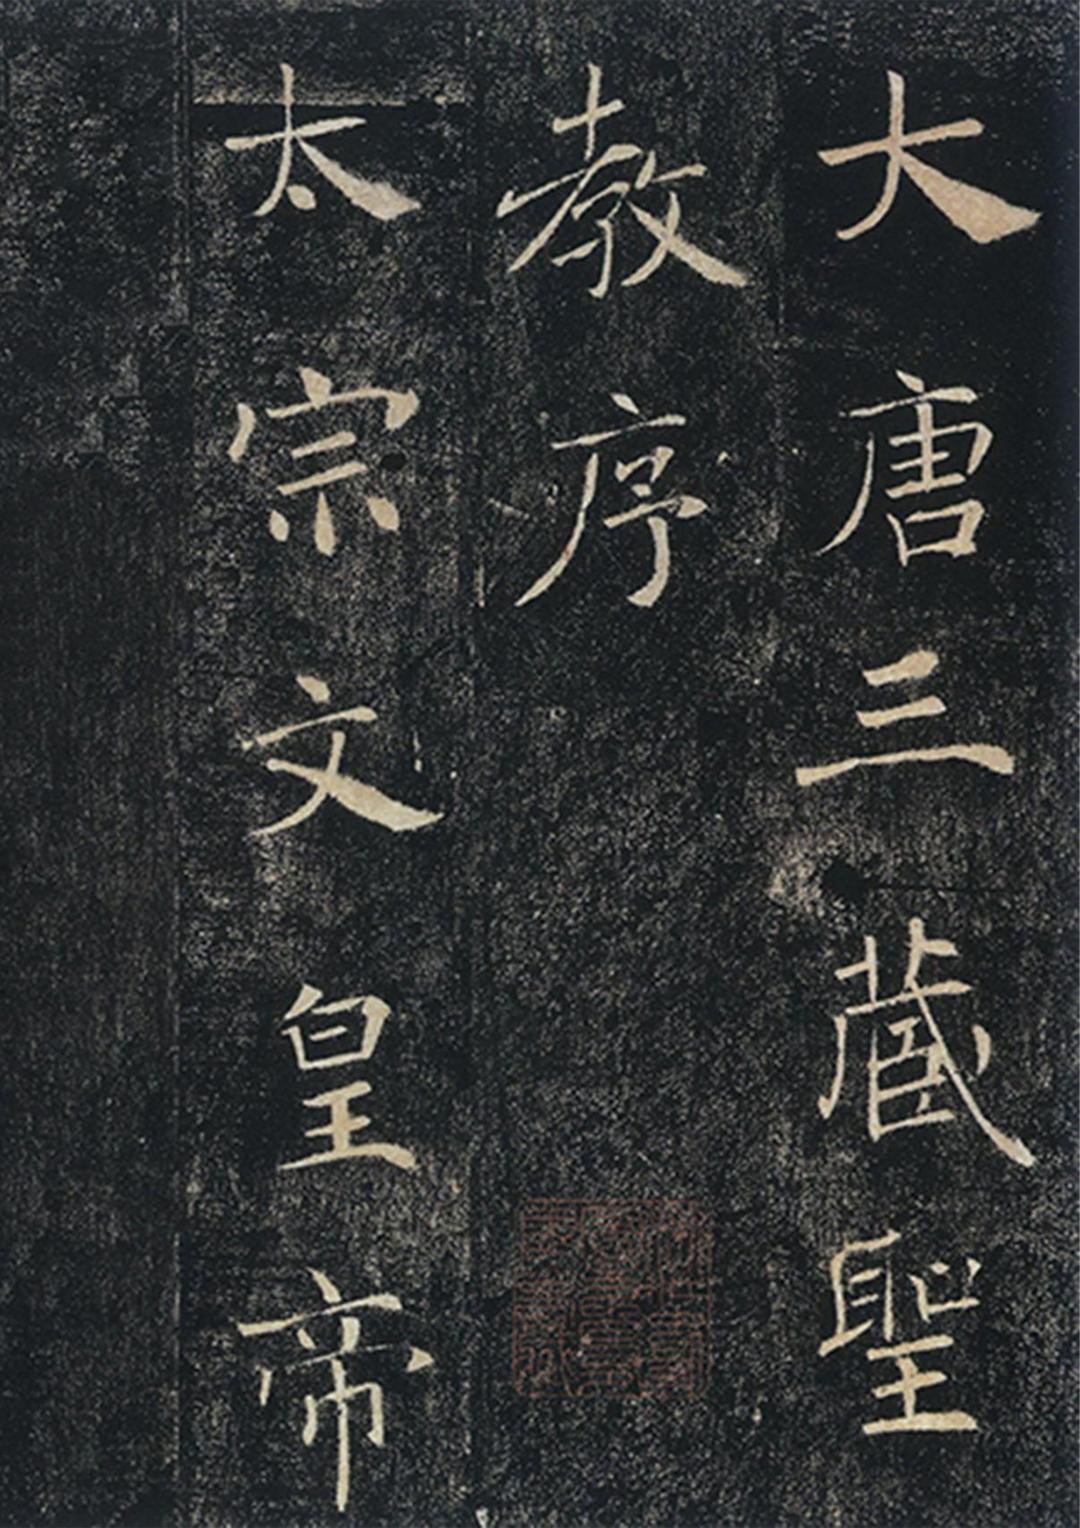 大唐三藏聖
教序
太宗文皇帝